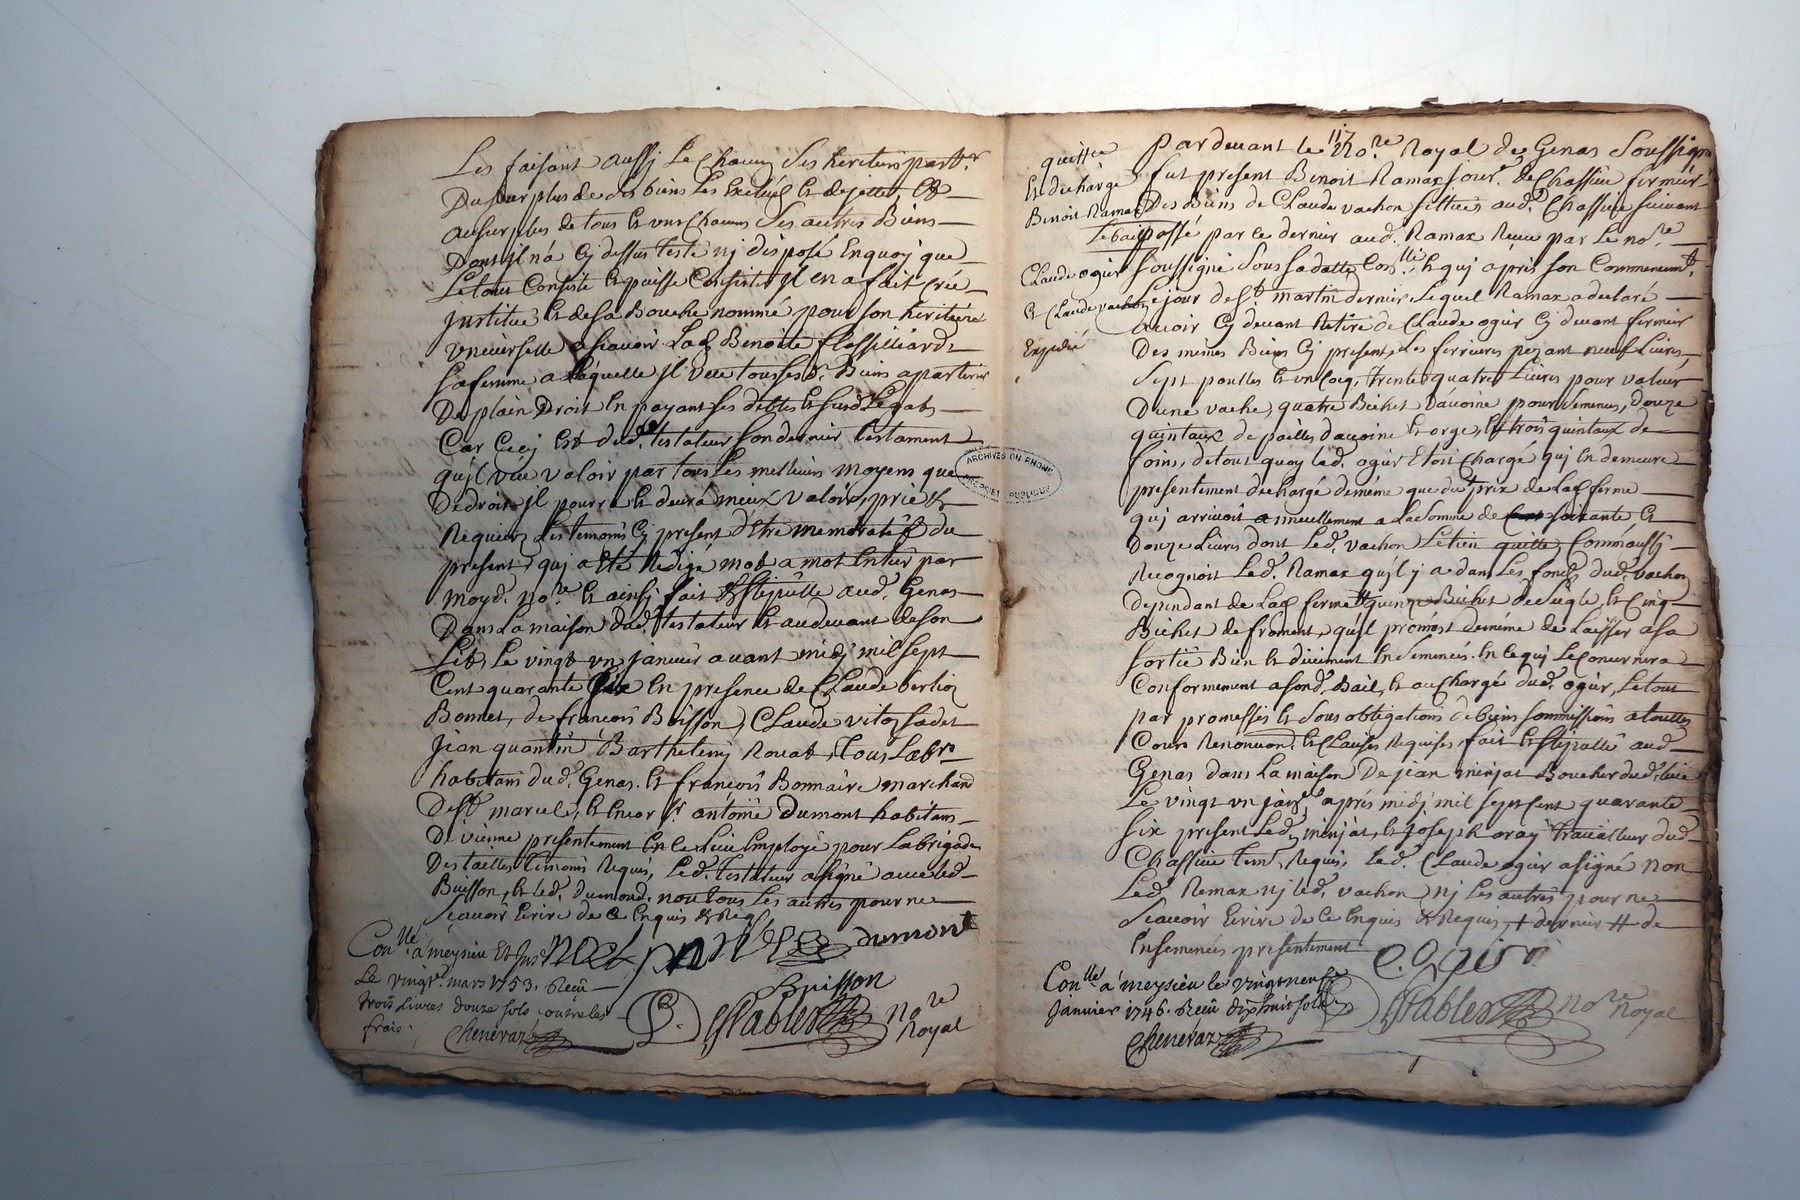 Les faisant aussy Le Chacun Ses heritiers part.er
Du surplus de ses biens Les Exclus Et dejette, Et
au surplus de tous Et uns Chacuns Ses autres Biens
Dont il n'a Cy dessus testé nj disposé Enquoy que
Le tout Consiste Et puisse Consister Il en a fait
Institué Et de sa Bouche nommé pour son heritiere
universelle a sçavoir Lad. Benoite
sa femme a Laquelle Il veut tous sesd. Biens apartenir
De plain Droit En payant ses debtes Et susd. Legats
Car Cecy Est dud. testateur son dernier testament
qu'il veut valoir par tous Les meilleurs moyens que
De droit Il pourra Et devra mieux valoir, prie Et
Requiers Les temoins Cy present d'Etre memoratifs du
present, qui a Eté Redigé mot a mot Entier par
moyd. no.re Et ainsy fait Et stipullé aud. Genas
Dans La maison dud. testateur Et audevant de son
Lit, Le vingt un janvier avant midj mil sept
Cent quarante six En presence de Claude
Bonnet, de françois Buisson, Claude
Jean quantin Barthelemj Tous Lab.rs
habitans dud. Genas. Et françois Bonnaire marchand
De St marcel, Et Encor S.r antoine Dumont habitans
De vienne presentement En Ce Lieu Employé pour La brigade
Des tailles temoins Requis, Led. Testateur a signé avec Led.
Buisson, Et Led. dumond. non tous Les autres pour ne
Sçavoir Ecrire de Ce Enquis Et Req.
dumont
Con.llé a meysieu Et
Le vingt. mars 1753. Reçu
trois Livres douze sols outre les
frais.
Buisson
Chenevaz
No.re
Royal
ARCHIVES DU RHONE
PROPRIÉTÉ PUBLIQUE
117
quittce
Et decharge
Benoit Ramaz
Claude ogier
Et Claude vachon
Expedié
Pardevant le No.re Royal de Genas Soussigné
fut present Benoit Ramaz jour.r de Chassieu fermier
Des Biens de Claude vachon scittues aud. Chassieu suivant
Le bail passé par Ce dernier aud. Ramaz Receu par Le no.re
Soussigné Sous Sa datte, Con.llé, Et qui a pris son Commencemt.
Le jour de St martin dernier, Lequel Ramaz a declaré
avoir Cy devant Retiré de Claude ogier Cy devant fermier
Des mêmes Biens Cy present, Les ferrures pezant neuf Livres,
Sept poulles Et un Coq, trente quatre Livres pour valeur
D'une vache, quatre Bichets d'avoine pour semences, douze
quintaux de pailles d'avoine Et orge, Et trois quintaux de
foins, de tout quoy Led. ogier Etoit Chargé qui En demeure
presentement dechargé de même que du prix de Lad. ferme
qui arrivoit annuellement a La Somme de soixante Et
Douze Livres dont Led. vachon Le tien quitte, Comm'aussy
Recognoit Led. Ramaz qu'il y a dans Les fonds dud. vachon
dependant de Lad. ferme # quinze Bichet de seigle, Et Cinq
Bichet de froment, qu'il promet de même de Laisser a sa
sortie Bien Et duëment Ensemencés. En Ce qui Le Concernera
Conformement a sond. Bail, Et au Chargé dud. ogier, Le tout
par promesses Et Sous obligations de biens sommissions a touttes
Cours Renonciaon. Et Clauses Requises. fait Et stipullé aud.
Genas dans La maison De jean minjat Boucher dud. Lieu
Le vingt un janv.er après midj mil sept Cent quarante
six present Led. minjat, Et joseph travailleur dud.
Chassieu Tem. Requis, Led. Claude ogier a signé non
Led. Ramaz nj Led. vachon nj Les autres pour ne
Sçavoir Ecrire de Ce Enquis Et Requis, + dernier # de
Ensemencés presentement
C. Ogier
Con.llé à meysieu le vingt neuf
Janvier 1746. Reçu dix huit sols
Chenevaz
No.re Royal